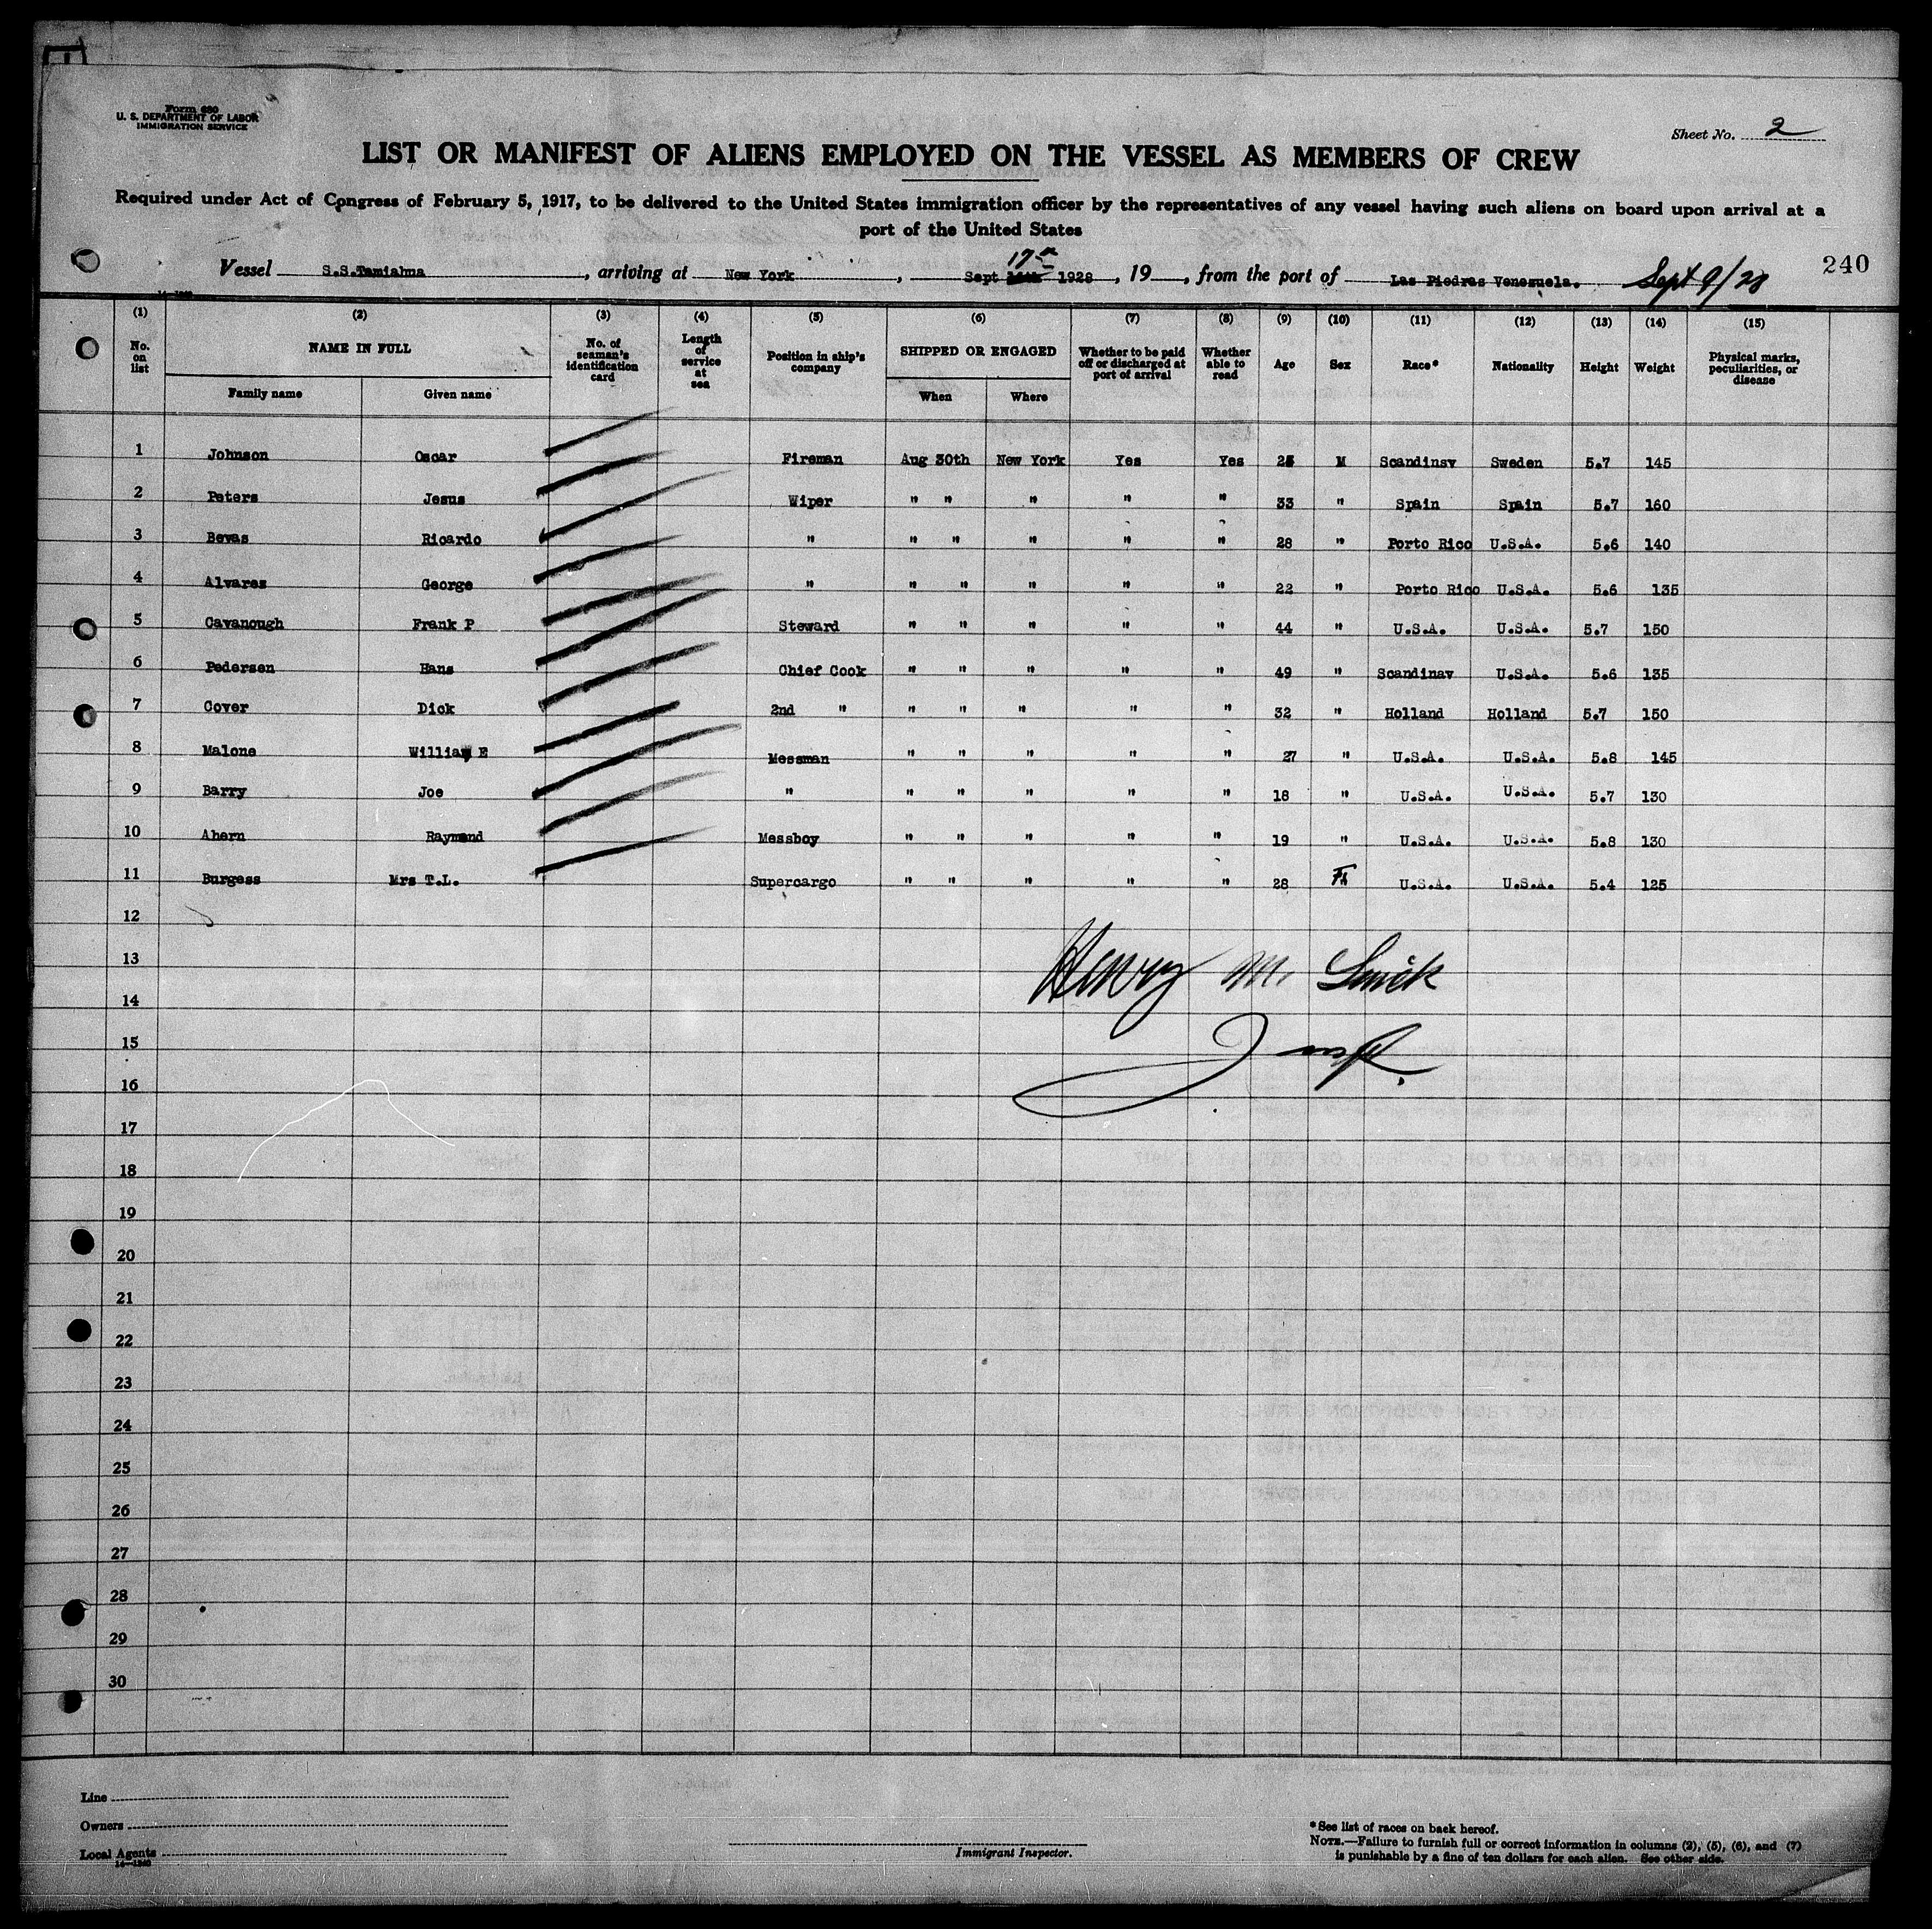 Form 680
U. S. DEPARTMENT OF LABOR
IMMIGRATION SERVICE
Sheet No. 2
LIST OR MANIFEST OF ALIENS EMPLOYED ON THE VESSEL AS MEMBERS OF CREW
Required under Act of Congress of February 5, 1917, to be delivered to the United States immigration officer by the representatives of any vessel having such aliens on board upon arrival at a
port of the United States
Vessel S.S.Tamiahua, arriving at New York, Sept 17th 1928, 19, from the port of Las Piedras Venezuela. Sept 9/28
240
(1) (2) (3) (4) (5) (6) (7) (8) (9) (10) (11) (12) (13) (14) (15)
No. on list NAME IN FULL No. of seaman's identification card Length of service at sea Position in ship's company SHIPPED OR ENGAGED Whether to be paid off or discharged at port of arrival Whether able to read Age Sex Race* Nationality Height Weight Physical marks, peculiarities, or disease
Family name Given name When Where
1 Johnson Oscar Fireman Aug 30th New York Yes Yes 25 M Scandinav Sweden 5.7 145
2 Peters Jesus Wiper " " " " " 33 " Spain Spain 5.7 160
3 Bevas Ricardo " " " " " " 28 " Porto Rico U.S.A. 5.6 140
4 Alvares George " " " " " " 22 " Porto Rico U.S.A. 5.6 135
5 Cavanough Frank P Steward " " " " " 44 " U.S.A. U.S.A. 5.7 150
6 Pedersen Hans Chief Cook " " " " " 49 " Scandinav U.S.A. 5.6 135
7 Cover Dick 2nd " " " " " " 32 " Holland Holland 5.7 150
8 Malone William E Messman " " " " " 27 " U.S.A. U.S.A. 5.8 145
9 Barry Joe " " " " " " 18 " U.S.A. U.S.A. 5.7 130
10 Ahern Raymond Messboy " " " " " 19 " U.S.A. U.S.A. 5.8 130
11 Burgess Mrs T.L. Supercargo " " " " " 28 F U.S.A. U.S.A. 5.4 125
12
13 Henry M. Smick
14
15 Insp.
16
17
18
19
20
21
22
23
24
25
26
27
28
29
30
Line
Owners
Local Agents
14—1240
Immigrant Inspector.
*See list of races on back hereof.
NOTE.—Failure to furnish full or correct information in columns (2), (5), (6), and (7)
is punishable by a fine of ten dollars for each alien. See other side.